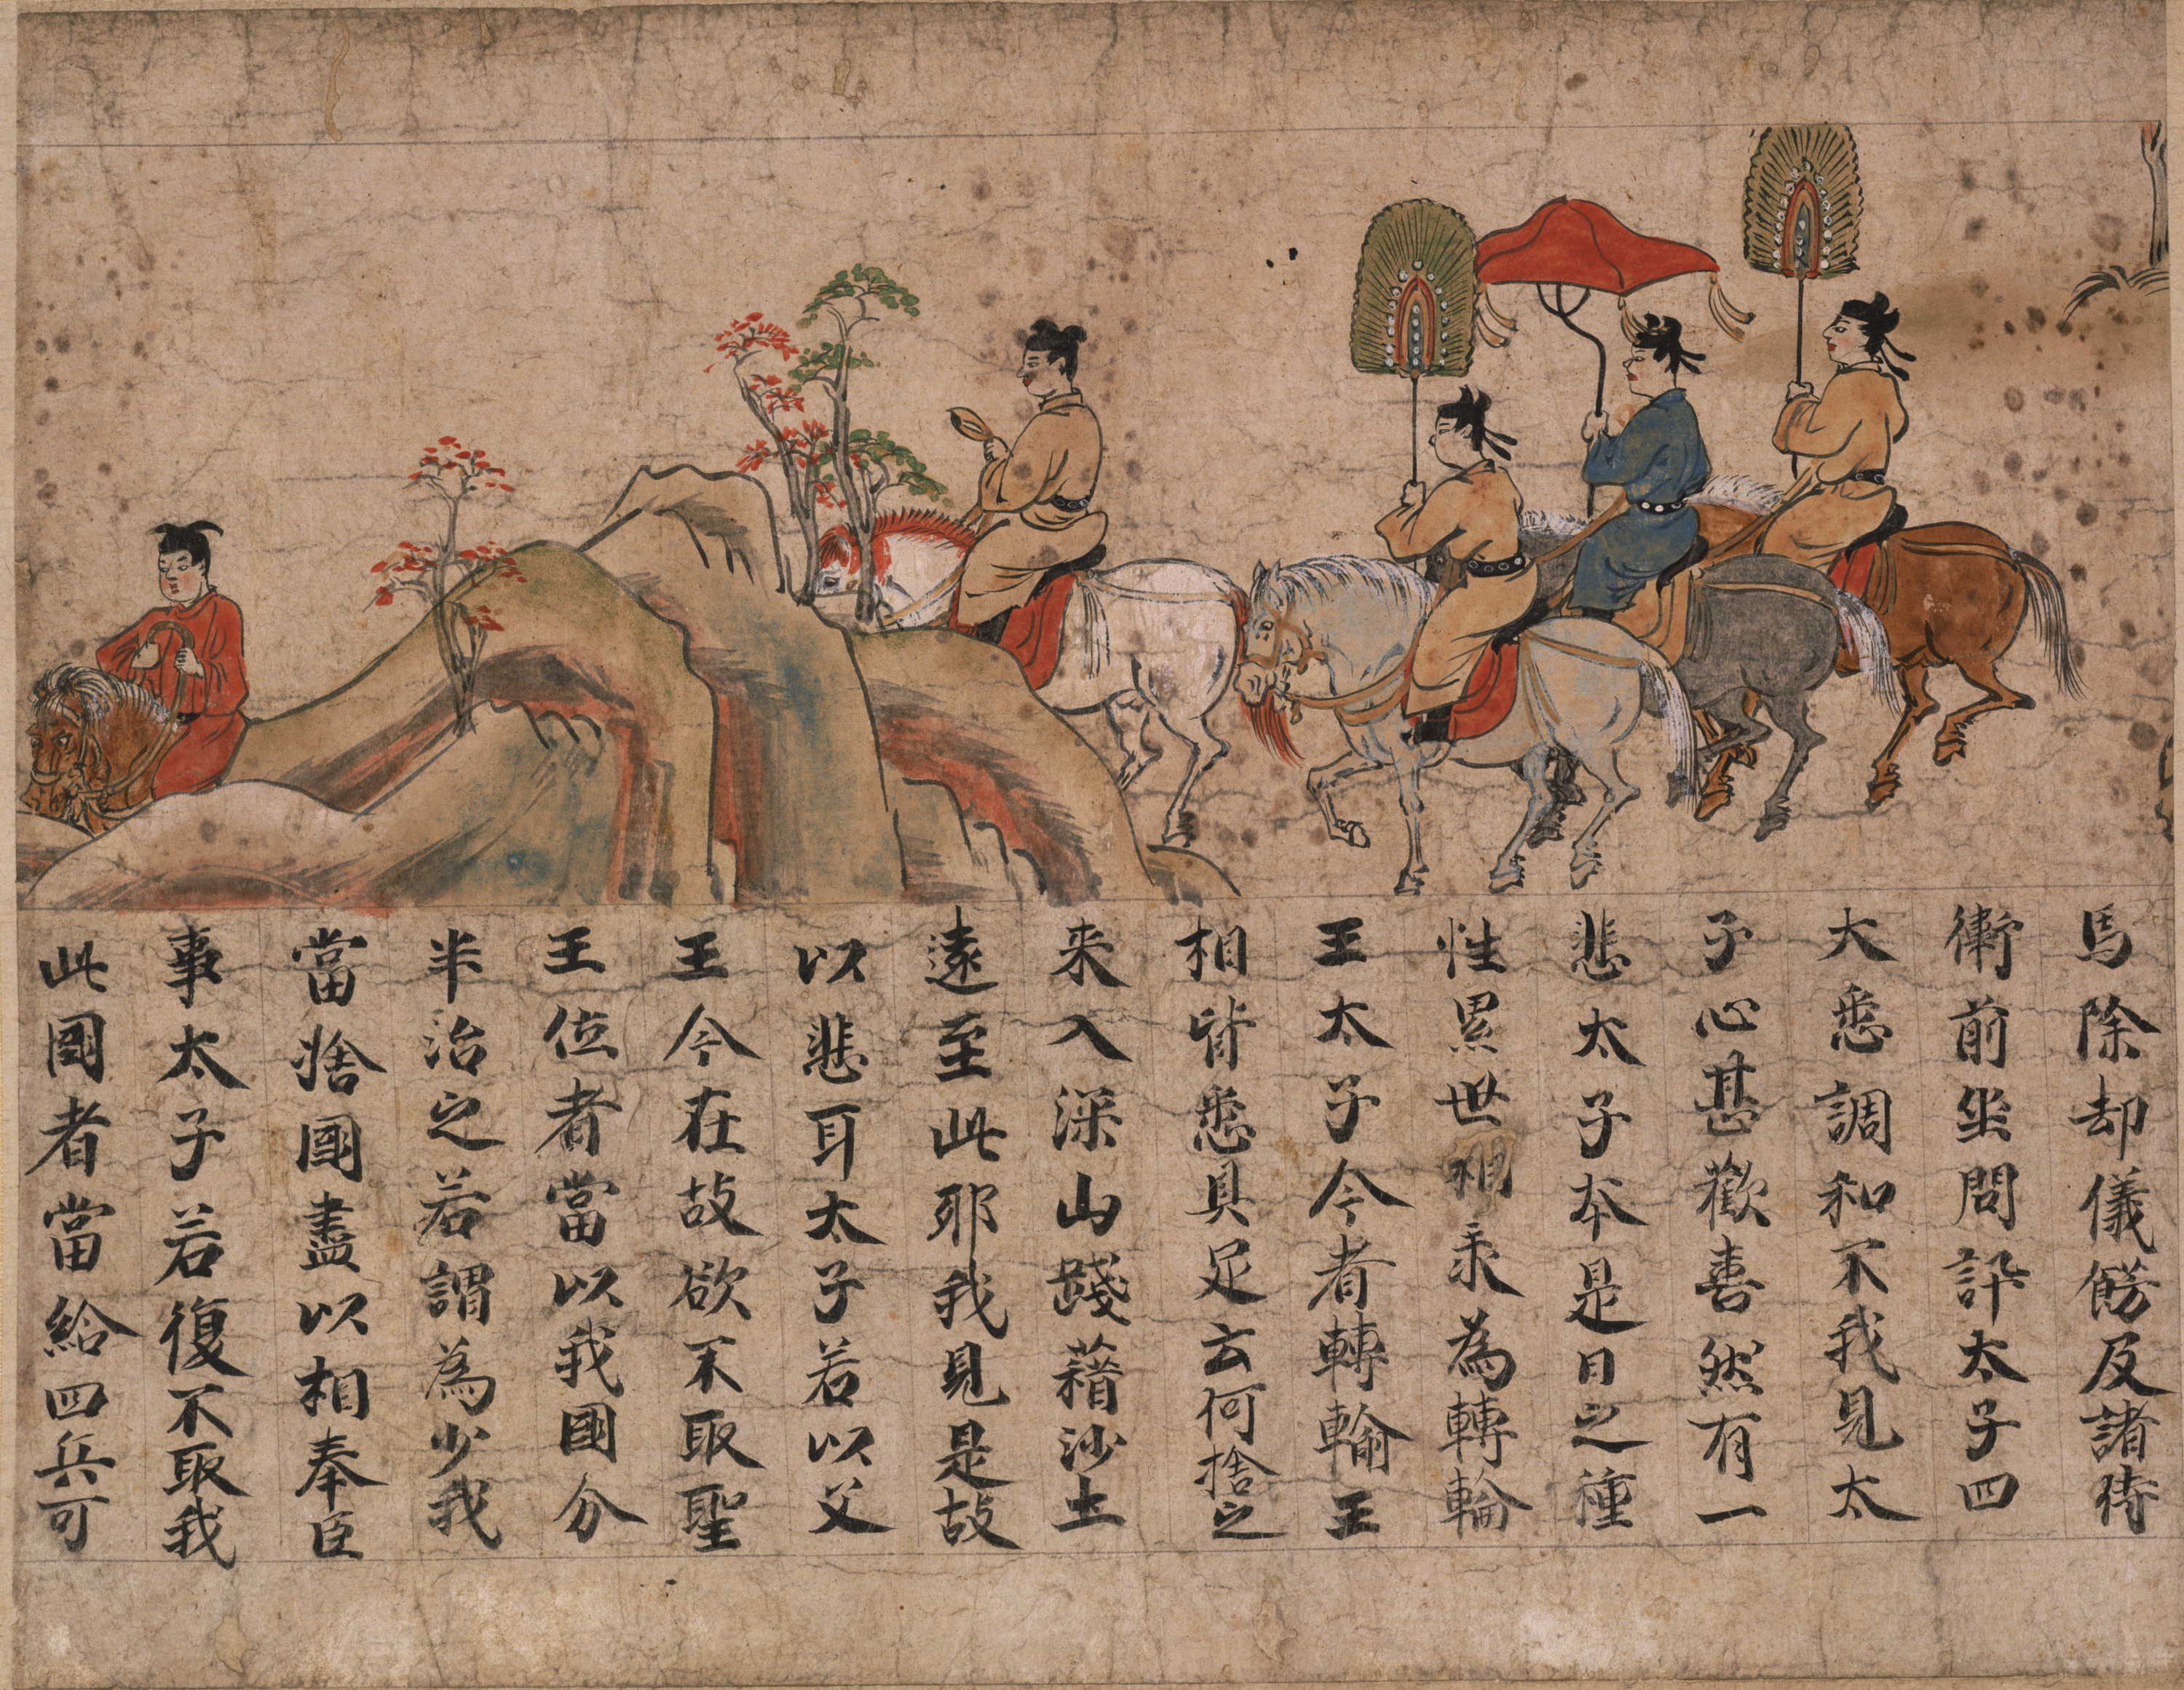 馬除却儀餝及諸侍
衛前坐問訊太子四
大悉調和不我見太
子心甚歡喜然有一
悲太子本是日之種
性累世相承為轉輪
王太子今者轉輪王
相皆悉具足云何捨之
来入深山踐藉沙土
遠至此耶我見是故
以悲耳太子若以父
王今在故欲不取聖
王位者當以我國分
半治之若謂為少我
當捨國盡以相奉臣
事太子若復不取我
此國者當給四兵可